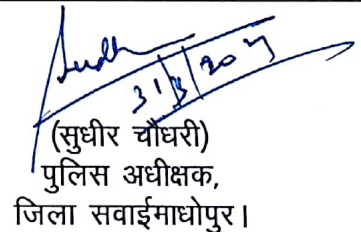 31/3/2021
(सुधीर चौधरी)
पुलिस अधीक्षक,
जिला सवाईमाधोपुर।